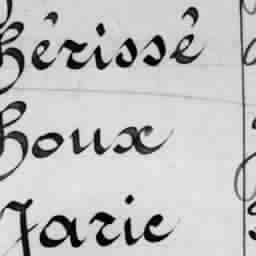 hérissé
houx
Jarie